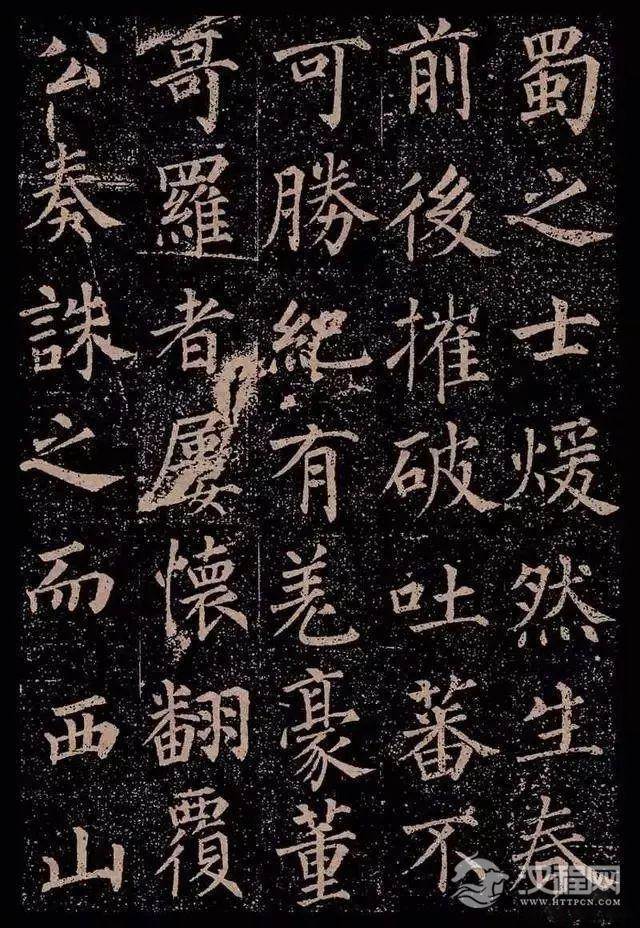 蜀之士煖然生春
前後摧破吐蕃不
可勝紀有羌豪董
哥羅者屢懷翻覆
公奏誅之而西山
汉程网
WWW.HTTPCN.COM